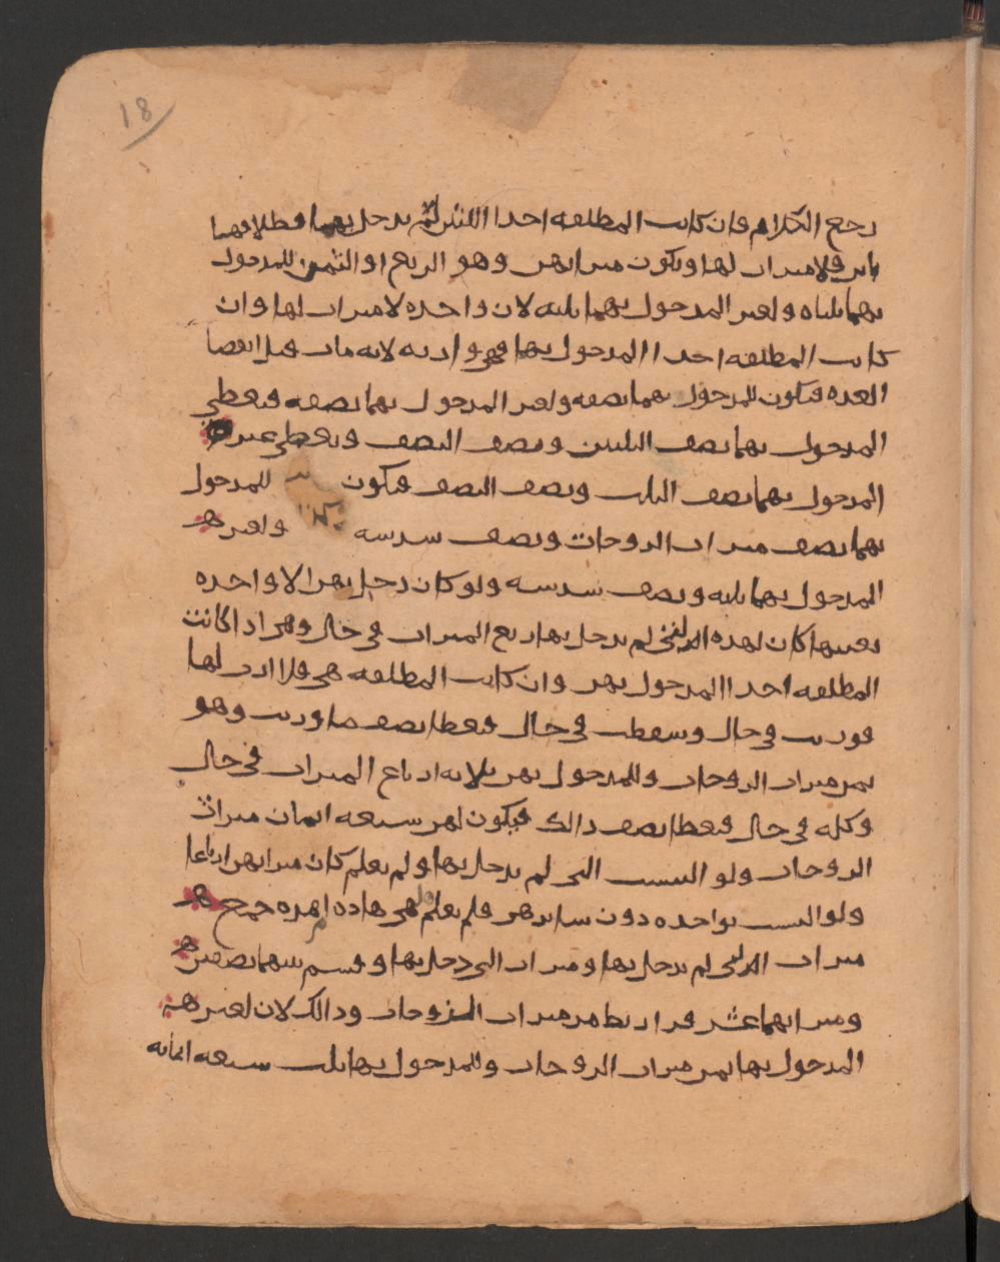 18
رجع الكلام فان كانت المطلقه احدا اللتين لم يدخل بهما فطلاقهما
باين فلا ميراث لها ويكون ميراثهن وهو الربع او الثمن للمدخول
بهما ثلثاه ولغير المدخول بهما ثلثه لان واحده لا ميراث لها وان
كانت المطلقه احدا المدخول بها فهي وارثه لانه مات قبل انقضا
العده فيكون للمدخول بهما نصفه ولغير المدخول بهما نصفه فيعطي
المدخول بهما نصف الثلثين ونصف النصف ويعطي غير
المدخول بهما نصف الثلث ونصف النصف فيكون للمدخول
بهما نصف ميراث الزوجات ونصف سدسه ولغير
المدخول بهما ثلثه ونصف سدسه ولو كان دخل بهن الا واحده
بعينها كان لهذه التي لم يدخل بها ربع الميراث في حال وهي اذا كانت
المطلقه احدا المدخول بهن وان كانت المطلقه هي فلا ارث لها
فورثت في حال وسقطت في حال فيعطا نصف ما ورثت وهو
ثمن ميراث الزوجات وللمدخول بهن ثلاثه ارباع الميراث في حال
وكله في حال فيعطا نصف ذالك فيكون لهن سبعه اثمان ميراث
الزوجات ولو التبست التي لم يدخل بها ولم يعلم كان ميراثهن ارباعا
ولو التبست بواحده دون سايرهن فلم يعلم هي هاذه ام هذه جمع
ميراث التي لم يدخل بها وميراث التي دخل بها وقسم بينهما نصفين
وميراثهما عشر قراريط من ميراث الزوجات وذالك لان لغير
المدخول بها ثمن ميراث الزوجات وللمدخول بها ثلث سبعه اثمانه